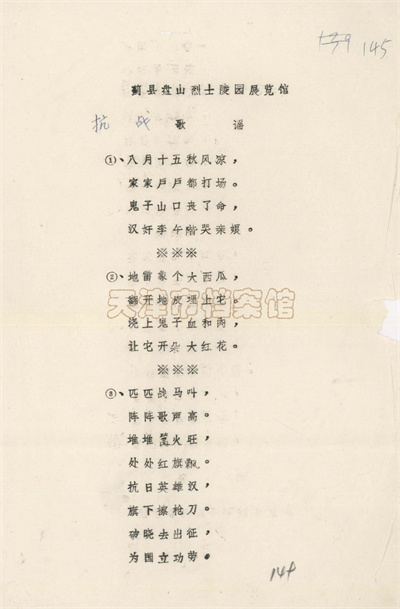 139 145
蓟县盘山烈士陵园展览馆
抗战歌谣
①、八月十五秋风凉，
家家户户都打场。
鬼子山口丧了命，
汉奸李午阶哭亲娘。
※※※
②、地雷象个大西瓜，
翻开地皮埋上它。
浇上鬼子血和肉，
让它开朵大红花。
天津市档案馆
※※※
③、匹匹战马叫，
阵阵歌声高。
堆堆篝火旺，
处处红旗飘。
抗日英雄汉，
旗下擦枪刀。
破晓去出征，
为国立功劳。